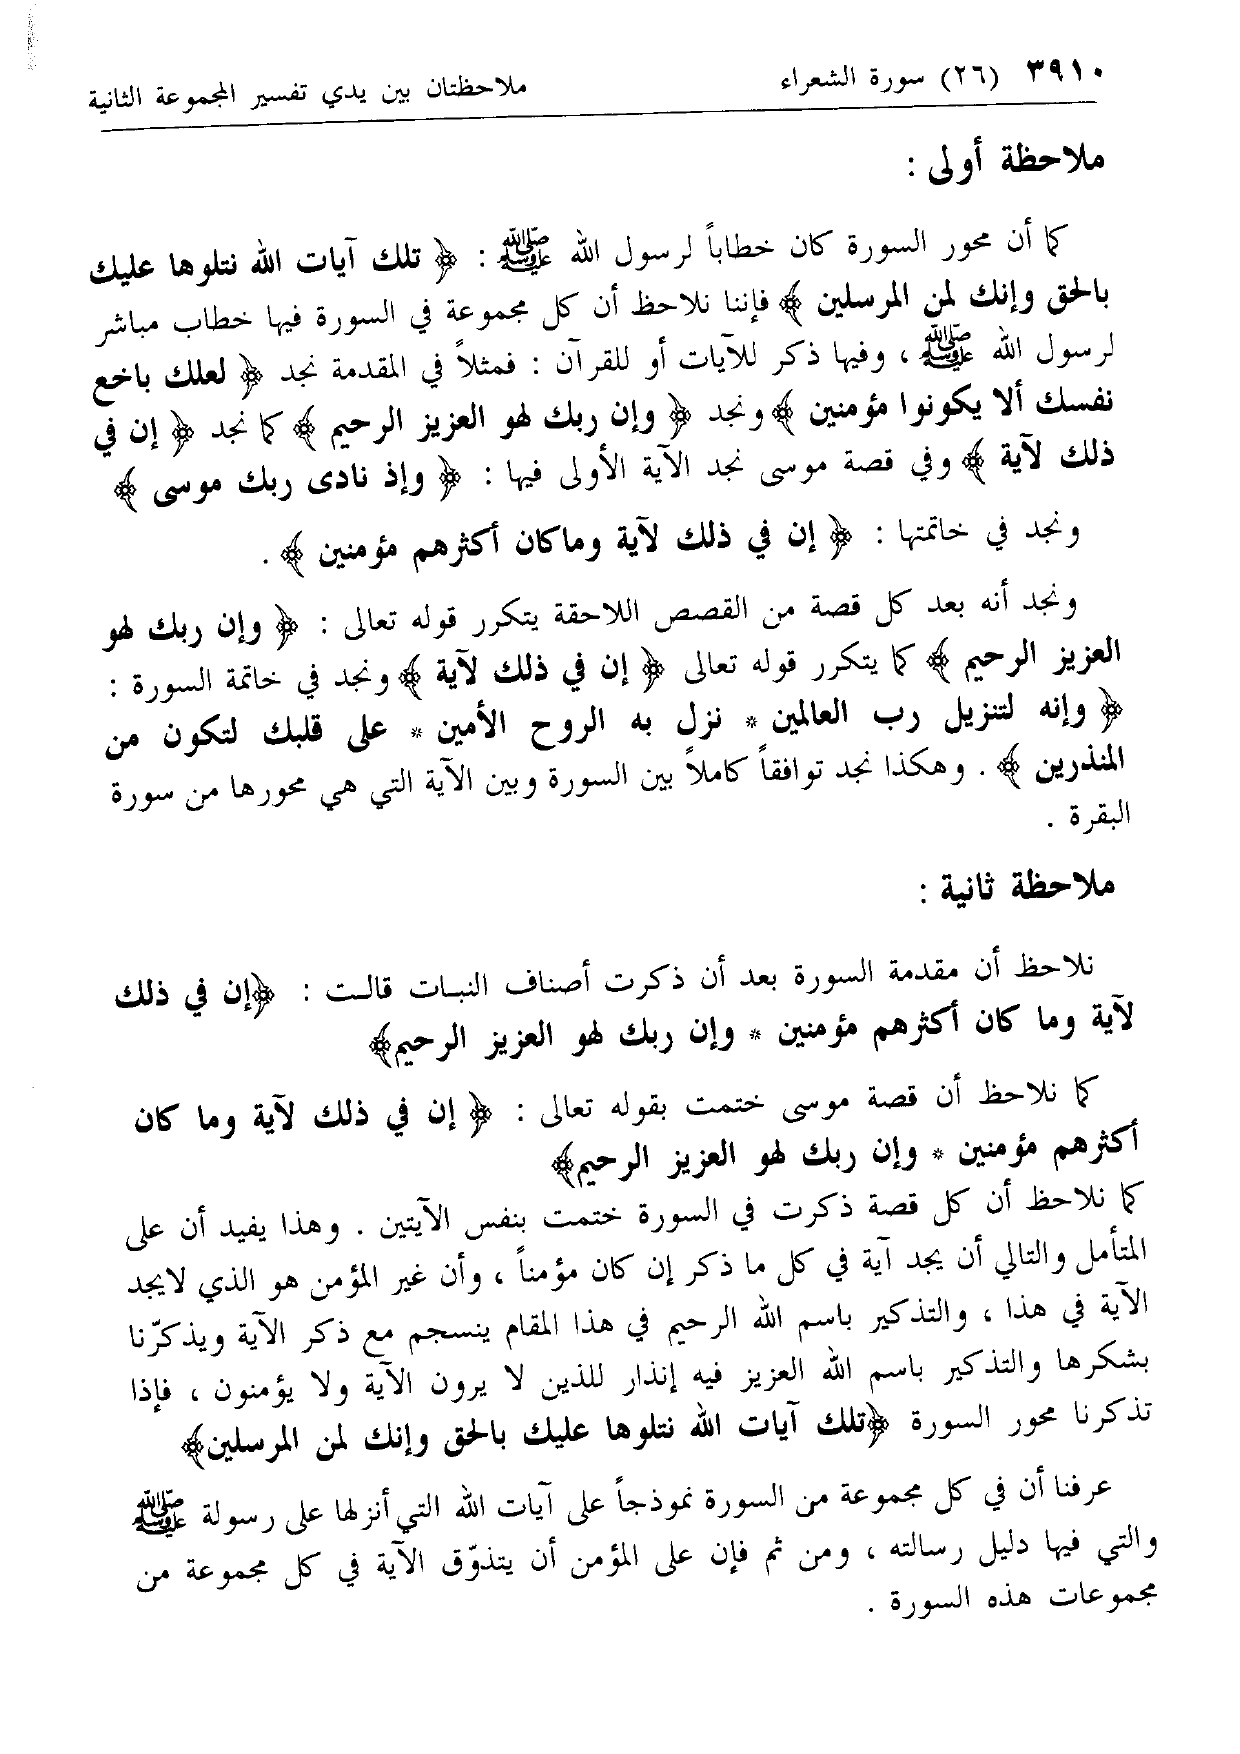 ٣٩١٠ (٢٦) سورة الشعراء ملاحظتان بين يدي تفسير المجموعة الثانية
ملاحظة أولى :
كما أن محور السورة كان خطاباً لرسول الله ﷺ : ﴿ تلك آيات الله نتلوها عليك
بالحق وإنك لمن المرسلين ﴾ فإننا نلاحظ أن كل مجموعة في السورة فيها خطاب مباشر
لرسول الله ﷺ ، وفيها ذكر للآيات أو للقرآن : فمثلاً في المقدمة نجد ﴿ لعلك باخع
نفسك ألا يكونوا مؤمنين ﴾ ونجد ﴿ وإن ربك لهو العزيز الرحيم ﴾ كما نجد ﴿ إن في
ذلك لآية ﴾ وفي قصة موسى نجد الآية الأولى فيها : ﴿ وإذ نادى ربك موسى ﴾
ونجد في خاتمتها : ﴿ إن في ذلك لآية وماكان أكثرهم مؤمنين ﴾ .
ونجد أنه بعد كل قصة من القصص اللاحقة يتكرر قوله تعالى : ﴿ وإن ربك لهو
العزيز الرحيم ﴾ كما يتكرر قوله تعالى ﴿ إن في ذلك لآية ﴾ ونجد في خاتمة السورة :
﴿ وإنه لتنزيل رب العالمين * نزل به الروح الأمين * على قلبك لتكون من
المنذرين ﴾ . وهكذا نجد توافقاً كاملاً بين السورة وبين الآية التي هي محورها من سورة
البقرة .
ملاحظة ثانية :
نلاحظ أن مقدمة السورة بعد أن ذكرت أصناف النبات قالت : ﴿إن في ذلك
لآية وما كان أكثرهم مؤمنين * وإن ربك لهو العزيز الرحيم﴾
كما نلاحظ أن قصة موسى ختمت بقوله تعالى : ﴿ إن في ذلك لآية وما كان
أكثرهم مؤمنين * وإن ربك لهو العزيز الرحيم﴾
كما نلاحظ أن كل قصة ذكرت في السورة ختمت بنفس الآيتين . وهذا يفيد أن على
المتأمل والتالي أن يجد آية في كل ما ذكر إن كان مؤمناً ، وأن غير المؤمن هو الذي لايجد
الآية في هذا ، والتذكير باسم الله الرحيم في هذا المقام ينسجم مع ذكر الآية ويذكّرنا
بشكرها والتذكير باسم الله العزيز فيه إنذار للذين لا يرون الآية ولا يؤمنون ، فإذا
تذكرنا محور السورة ﴿تلك آيات الله نتلوها عليك بالحق وإنك لمن المرسلين﴾
عرفنا أن في كل مجموعة من السورة نموذجاً على آيات الله التي أنزلها على رسولة ﷺ
والتي فيها دليل رسالته ، ومن ثم فإن على المؤمن أن يتذوّق الآية في كل مجموعة من
مجموعات هذه السورة .